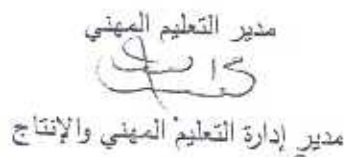 مدير التعليم المهني
مدير إدارة التعليم المهني والإنتاج